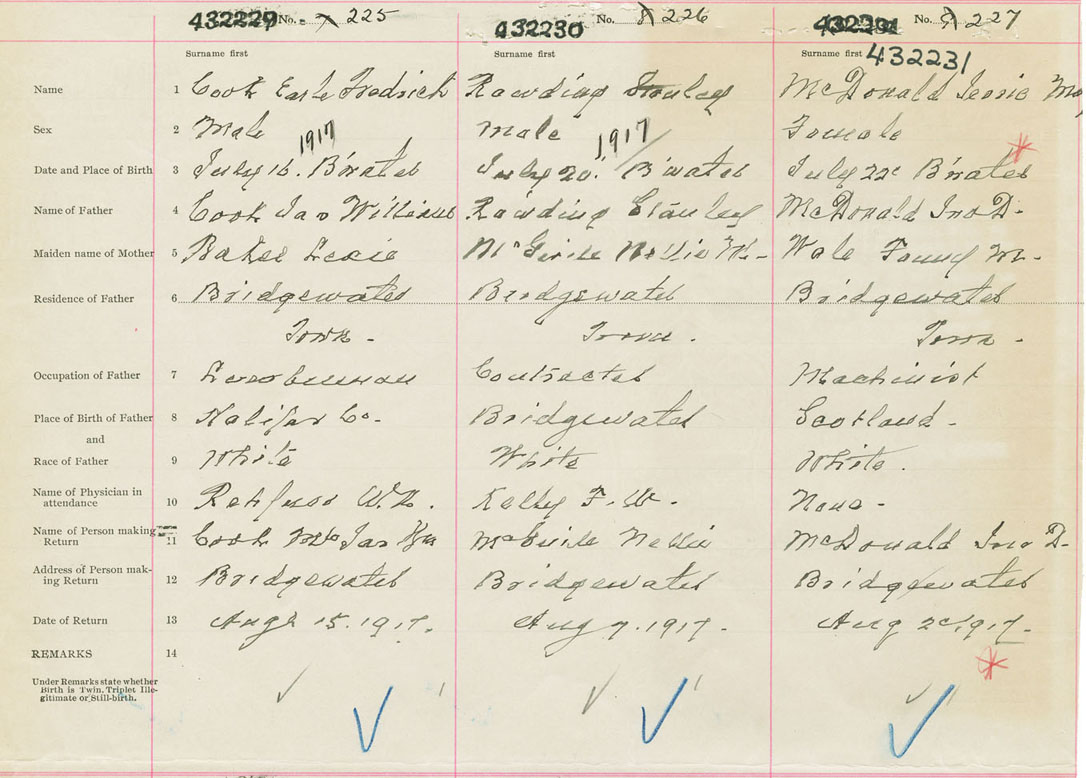 432229 No. 7 225 432230 No. 8 226 432231 No. 9 227
Surname first Surname first Surname first 432231
Name 1 Cook Earle Fredrick Rawding Stanley McDonald Jessie May
Sex 2 Male Male Female
1917 1917
Date and Place of Birth 3 July 16. B'water July 20. B'water July 22 B'water
Name of Father 4 Cook Jas William Rawding Stanley McDonald Jno D.
Maiden name of Mother 5 Baker Lexie McGuire Nellie M. Wale Fanny M.
Residence of Father 6 Bridgewater Bridgewater Bridgewater
Town. Town. Town.
Occupation of Father 7 Lumberman Contractor Machinist
Place of Birth of Father 8 Halifax Co. Bridgewater Scotland.
and
Race of Father 9 White White White.
Name of Physician in
attendance 10 Rehfuss W.N. Kelly F.W. None.
Name of Person making
Return 11 Cook Mrs Jas Wm McGuire Nellie McDonald Jno D.
Address of Person mak-
ing Return 12 Bridgewater Bridgewater Bridgewater
Date of Return 13 Aug 15.1917. Aug 7.1917. Aug 1917.
REMARKS 14
Under Remarks state whether
Birth is Twin, Triplet Ille-
gitimate or Still-birth.